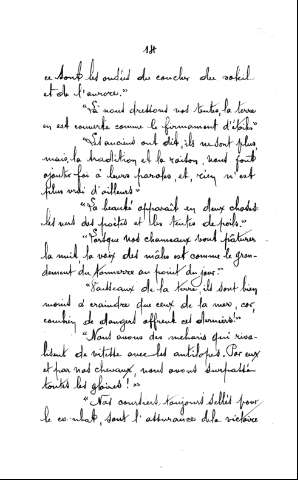 14
ce sont les ondées du coucher du soleil
et de l'aurore."
"Si nous dressons nos tentes, la terre
en est couverte comme le firmament d'étoiles"
"Les anciens ont dit, ils ne sont plus,
mais, la tradition et la raison, nous font
ajouter foi à leurs paroles, et, rien n'est
plus vrai d'ailleurs"
"La beauté apparaît en deux choses
les vers des poètes et les tentes de poils."
"Lorsque nos chameaux vont pâturer
la nuit, la voix des mâles est comme le gron-
dement du tonnerre au point du jour."
"Vaisseaux de la terre, ils sont bien
moins à craindre que ceux de la mer, car,
combien de dangers offrent ces derniers!"
"Nous avons des meharis qui riva-
lisent de vitesse avec les antilopes. Par eux
et par nos chevaux, nous avons surpassé
toutes les gloires!"
"Nos coursiers, toujours sellés pour
le combat, sont l'assurance de la victoire